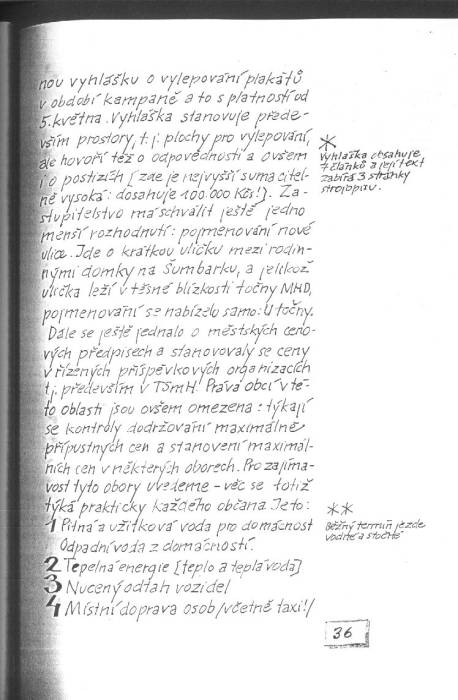 nou vyhlášku o vylepování plakátů
v období kampaně a to s platností od
5. května. Vyhláška stanovuje přede-
vším prostory, t.j. plochy pro vylepování,
ale hovoří též o odpovědnosti a ovšem
i o postizích [zde je nejvyšší suma citel-
ně vysoká: dosahuje 100.000 Kčs!]. Za-
stupitelstvo má schválit ještě jedno
menší rozhodnutí: pojmenování nové
ulice. Jde o krátkou uličku mezi rodin-
nými domky na Šumbarku, a jelikož
ulička leží v těsné blízkosti točny MHD,
pojmenování se nabízelo samo: U točny.
Dále se ještě jednalo o městských ceno-
vých předpisech a stanovovaly se ceny
v řízených příspěvkových organizacích
t.j. především v TSmH. Práva obcí v té-
to oblasti jsou ovšem omezena: týkají
se kontroly dodržování maximálně
přípustných cen a stanovení maximál-
ních cen v některých oborech. Pro zajíma-
vost tyto obory uvedeme - věc se totiž
týká prakticky každého občana. Je to:
1 Pitná a užitková voda pro domácnost
Odpadní voda z domácností.
2 Tepelná energie [teplo a teplá voda]
3 Nucený odtah vozidel
4 Místní doprava osob /včetně taxi!/
*
Vyhláška obsahuje
7 článků a její text
zabírá 3 stránky
strojopisu.
**
Běžný termín je zde
vodné a stočné
36